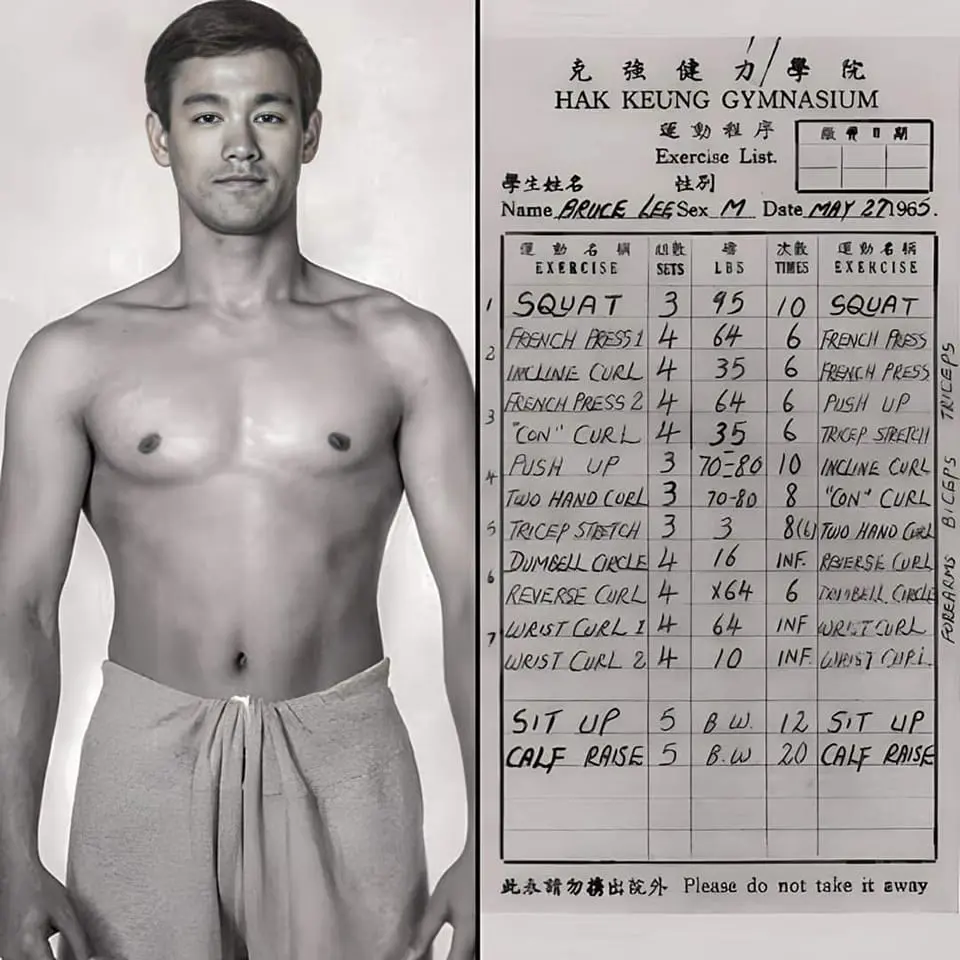 克強健力學院
HAK KEUNG GYMNASIUM
運動程序
Exercise List.
繳費日期
學生姓名 性別
Name BRUCE LEE Sex M Date MAY 27 1965.
運動名稱 組數 磅 次數 運動名稱
EXERCISE SETS LBS TIMES EXERCISE
1 SQUAT 3 95 10 SQUAT
FRENCH PRESS 1 4 64 6 FRENCH PRESS
2
INCLINE CURL 4 35 6 FRENCH PRESS
FRENCH PRESS 2 4 64 6 PUSH UP
3
"CON" CURL 4 35 6 TRICEP STRETCH
PUSH UP 3 70-80 10 INCLINE CURL
4
TWO HAND CURL 3 70-80 8 "CON" CURL
5 TRICEP STRETCH 3 3 8(6) TWO HAND CURL
DUMBELL CIRCLE 4 16 INF. REVERSE CURL
6
REVERSE CURL 4 X64 6 DUMBELL CIRCLE
7 WRIST CURL 1 4 64 INF WRIST CURL
WRIST CURL 2 4 10 INF. WRIST CURL
SIT UP 5 B.W. 12 SIT UP
CALF RAISE 5 B.W 20 CALF RAISE
TRICEPS
BICEPS
FOREARMS
此表請勿携出院外 Please do not take it away